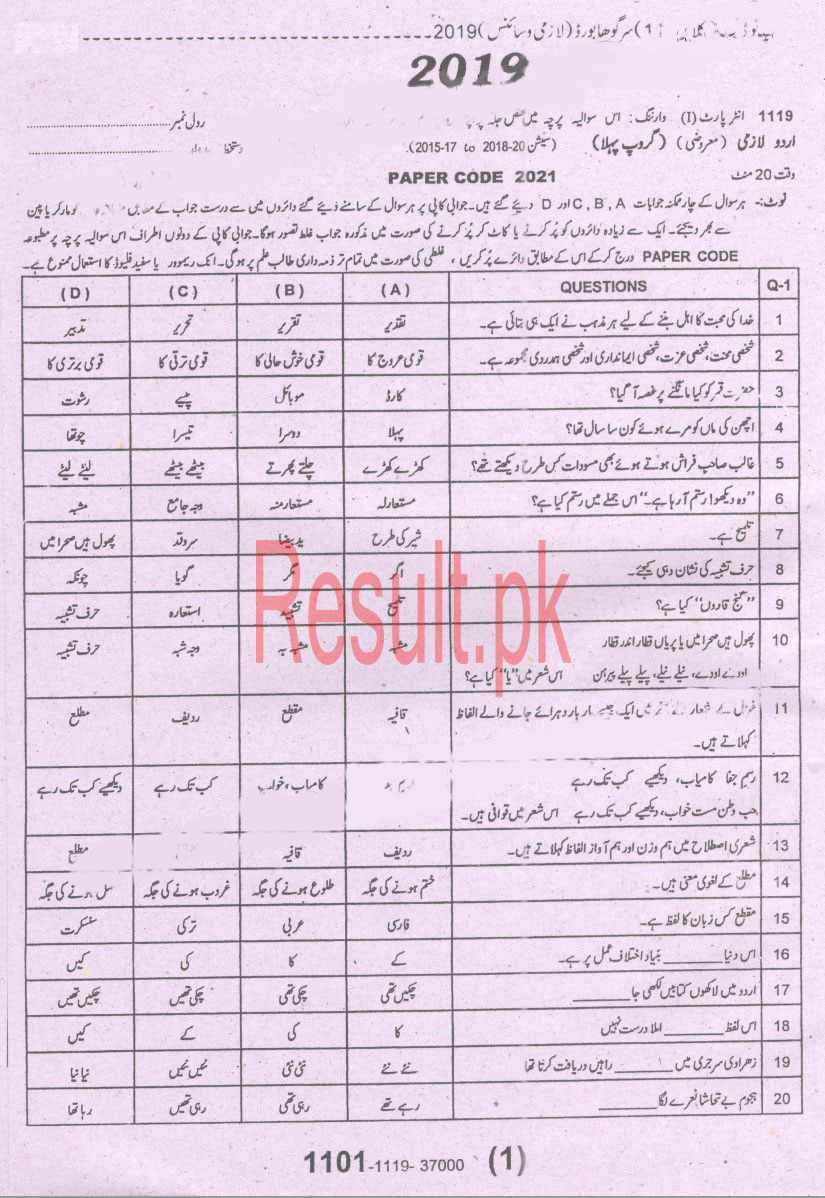 سرگودھا بورڈ (لازمی و سائنس) 2019
2019
1119 انٹر پارٹ (I) وارننگ: اس سوالیہ پرچہ میں رول نمبر
اردو لازمی (معروضی) (گروپ پہلا) (سیشن 20-2018 to 17-2015) دستخط
وقت 20 منٹ PAPER CODE 2021
نوٹ:- ہر سوال کے چار ممکنہ جوابات C, B, A اور D دیے گئے ہیں۔ جوابی کاپی پر ہر سوال کے سامنے دیئے گئے دائروں میں سے درست جواب کے مطابق کو مارکر یا پین
سے بھر دیجئے۔ ایک سے زیادہ دائروں کو پُر کرنے یا کاٹ کر پُر کرنے کی صورت میں مذکورہ جواب غلط تصور ہوگا۔ جوابی کاپی کے دونوں اطراف اس سوالیہ پرچہ پر مطبوعہ
PAPER CODE درج کر کے اس کے مطابق دائرے پُر کریں، غلطی کی صورت میں تمام تر ذمہ داری طالب علم پر ہوگی۔ انک ریموور یا سفید فلیوڈ کا استعمال ممنوع ہے۔
Q-1 QUESTIONS (A) (B) (C) (D)
1 خدا کی محبت کا اہل بننے کے لیے ہر مذہب نے ایک ہی بتائی ہے۔ تقدیر تقریر تحریر تدبیر
2 شخصی محنت، شخصی عزت، شخصی ایمانداری اور شخصی ہمدردی مجموعہ ہے۔ قومی عروج کا قومی خوش حالی کا قومی ترقی کا قومی برتری کا
3 حضرت قمر کو کیا مانگنے پر غصہ آ گیا؟ کارڈ موبائل پیسے رشوت
4 اچھن کی ماں کو مرے ہوئے کون سا سال تھا؟ پہلا دوسرا تیسرا چوتھا
5 غالب صاحب فراش ہوتے ہوئے بھی مسودات کس طرح دیکھتے تھے؟ کھڑے کھڑے چلتے پھرتے بیٹھے بیٹھے لیٹے لیٹے
6 "وہ دیکھو! رستم آ رہا ہے۔" اس جملے میں رستم کیا ہے؟ مستعارلہ مستعارمنہ وجہ جامع مشبہ
7 تلمیح ہے۔ شیر کی طرح یدِ بیضا سرو قد پھول ہیں صحرا میں
8 حرف تشبیہ کی نشان دہی کیجئے۔ اگر مگر گویا چونکہ
9 "گنج قاروں" کیا ہے؟ تلمیح تشبیہ استعارہ حرف تشبیہ
10 پھول ہیں صحرا میں یا پریاں قطار اندر قطار مشبہ مشبہ بہ وجہ شبہ حرف تشبیہ
اودے اودے، نیلے نیلے، پیلے پیلے پیرہن اس شعر میں "یا" کیا ہے؟
11 غزل کے میں ایک جیسے بار بار دہرائے جانے والے الفاظ قافیہ مقطع ردیف مطلع
کہلاتے ہیں۔
12 رسم جفا کامیاب، دیکھیے کب تک رہے کامیاب، خواب کب تک رہے دیکھیے کب تک رہے
حب وطن مست خواب، دیکھیے کب تک رہے اس شعر میں قوافی ہیں۔
13 شعری اصطلاح میں ہم وزن اور ہم آواز الفاظ کہلاتے ہیں۔ ردیف قافیہ مطلع
14 مطلع کے لغوی معنی ہیں۔ ختم ہونے کی جگہ طلوع ہونے کی جگہ غروب ہونے کی جگہ ہونے کی جگہ
15 مقطع کس زبان کا لفظ ہے۔ فارسی عربی ترکی سنسکرت
16 اس دنیا ______ بنیاد اختلاف عمل پر ہے۔ کے کا کی کیں
17 اردو میں لاکھوں کتابیں لکھی جا ______ چکیں تھی چکی تھی چکی تھیں چکیں تھیں
18 اس لفظ ______ املا درست نہیں کا کی کے کیں
19 زھراوی سرجری میں ______ راہیں دریافت کرتا تھا نئے نئے نئی نئی نئیں نئیں نیا نیا
20 ہجوم بے تحاشا نعرے لگا ______ رہے تھے رہی تھی رہی تھیں رہا تھا
Result.pk
1101-1119-37000 (1)